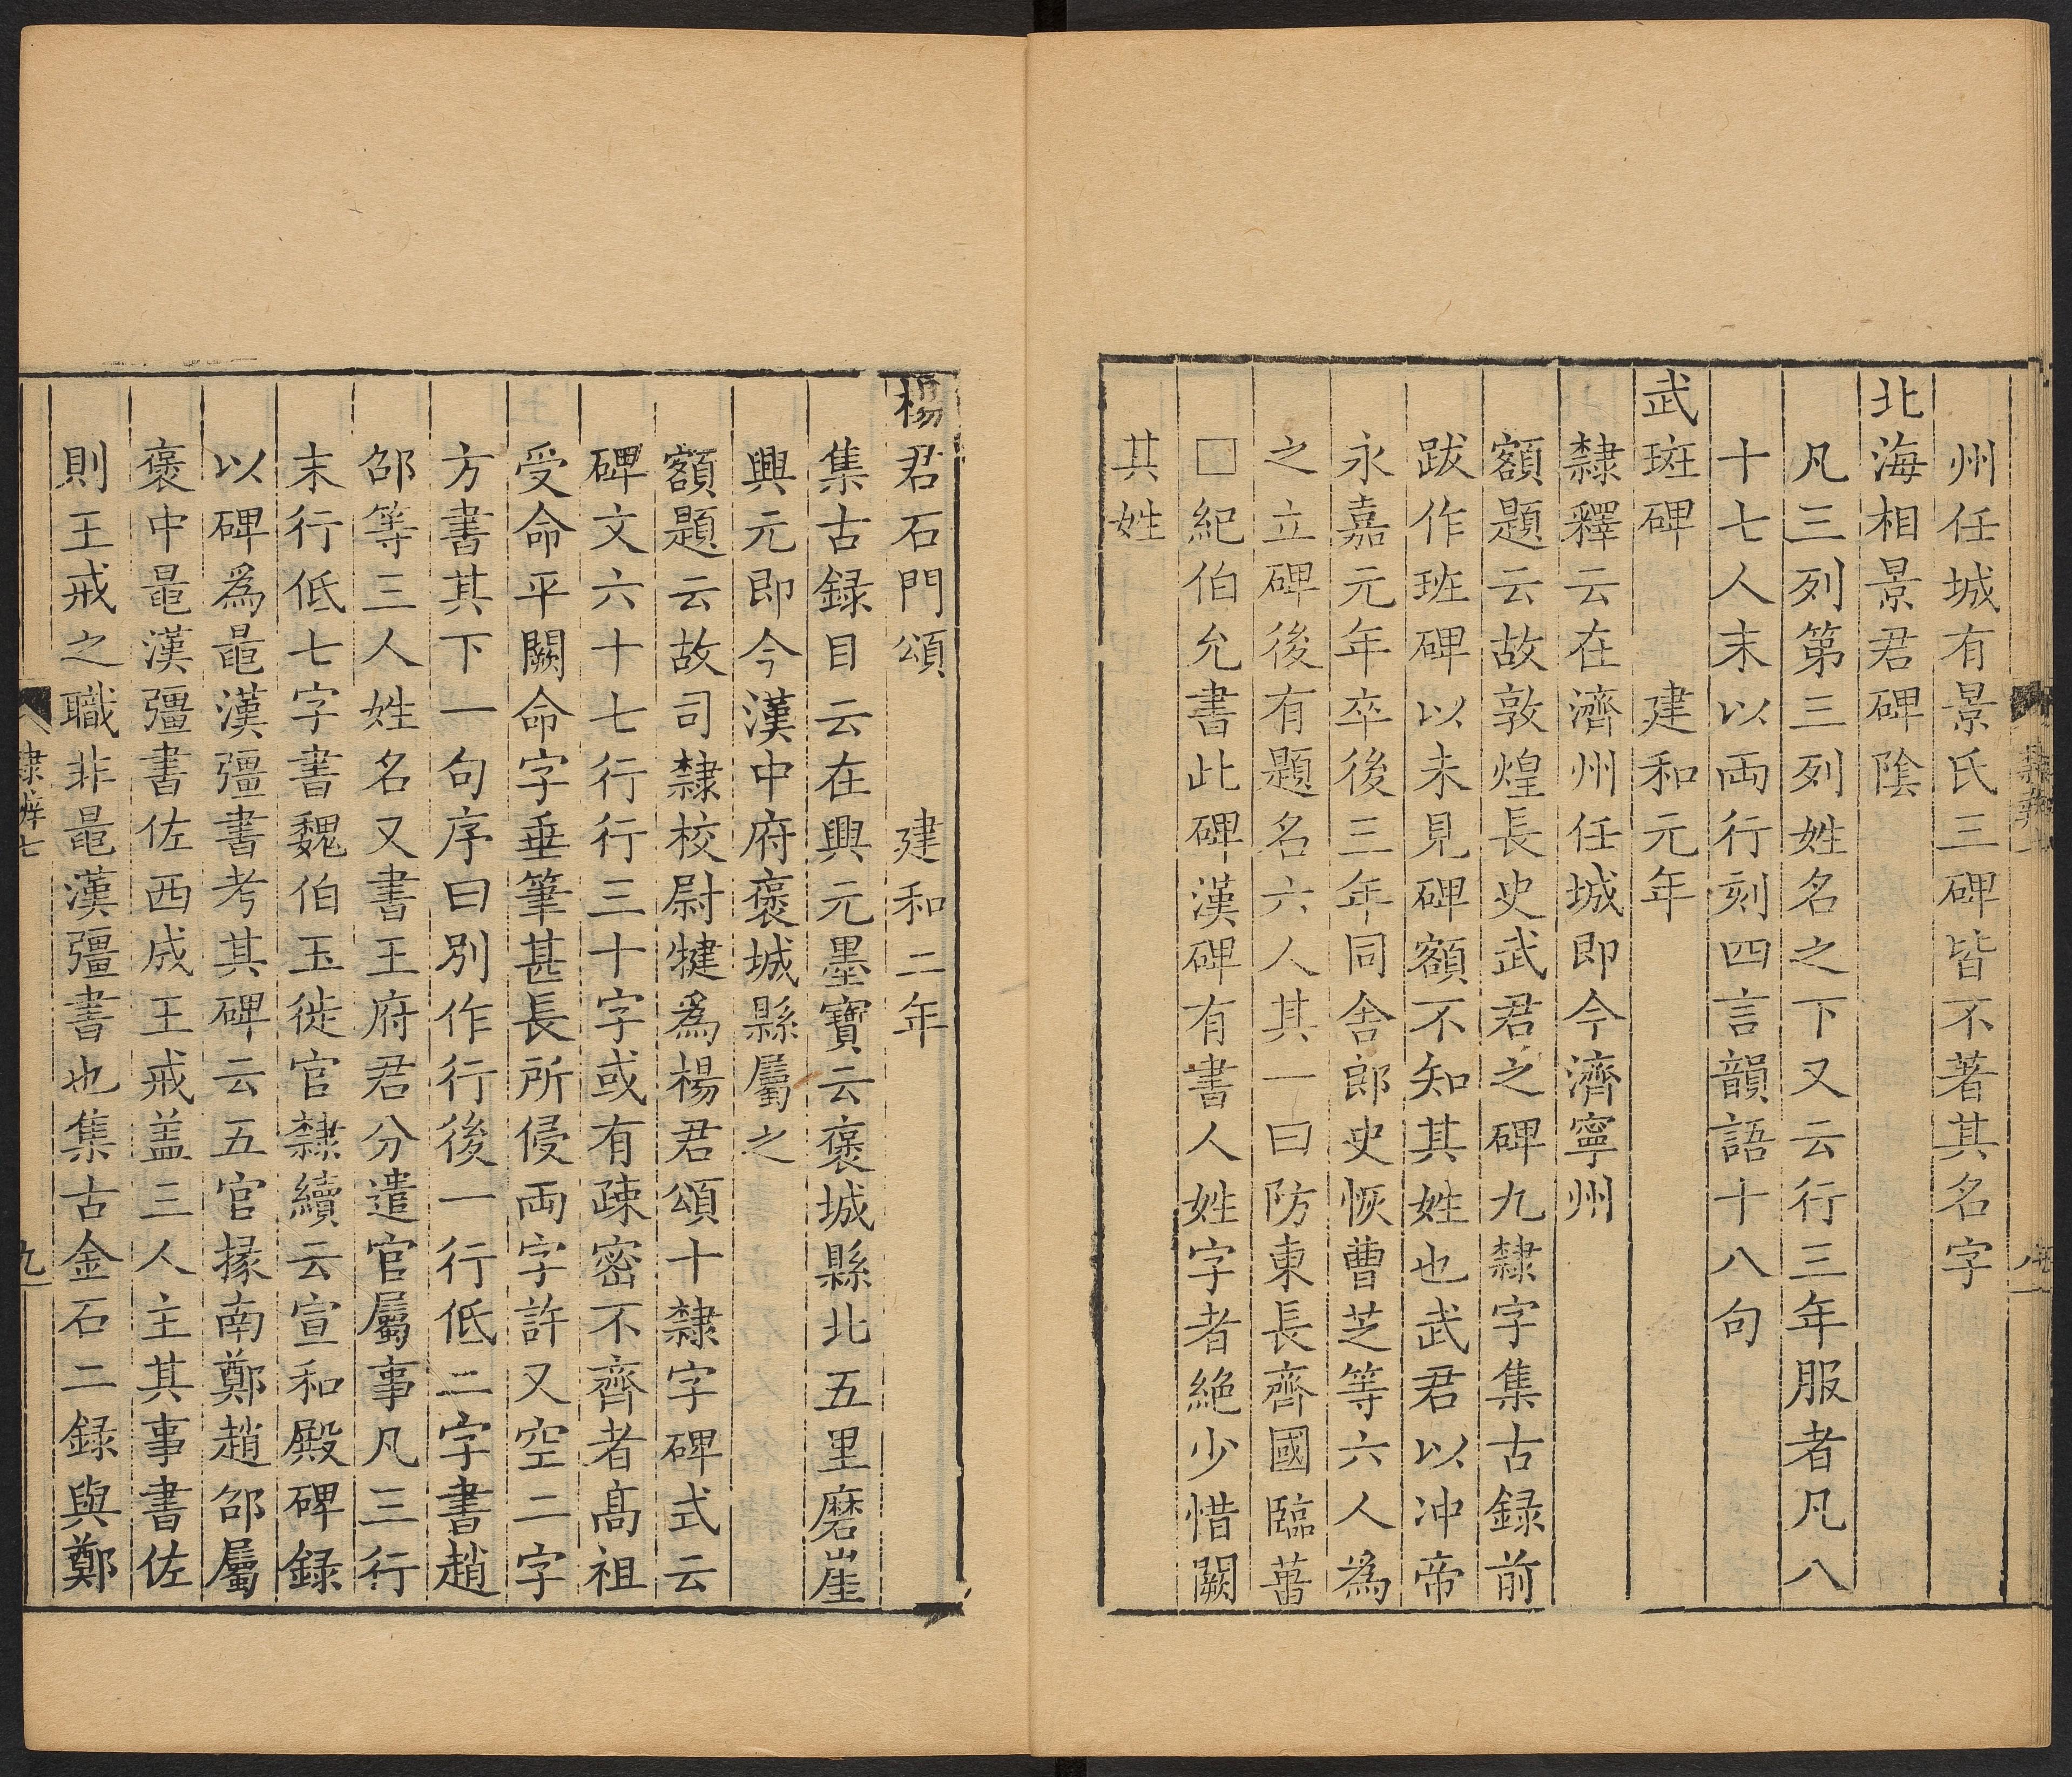 州任城有景氏三碑皆不著其名字
北海相景君碑陰
凡三列第三列姓名之下又云行三年服者凡八
十七人末以両行刻四言韻語十八句
武班碑 建和元年
隸釋云在濟州任城即今濟寧州
額題云故敦煌長史武君之碑九隸字集古録前
跋作班碑以未見碑額不知其姓也武君以冲帝
永嘉元年卒後三年同舍郎史恢曹芝等六人為
之立碑後有題名六人其一曰防東長齊國臨菑
□紀伯允書此碑漢碑有書人姓字者絶少惜闕
其姓
楊君石門頌 建和二年
集古録目云在興元墨寶云褒城縣北五里磨崖
興元即今漢中府褒城縣屬之
額題云故司隸校尉犍為楊君頌十隸字碑式云
碑文六十七行行三十字或有疎密不齊者高祖
受命平闕命字垂筆甚長所侵両字許又空二字
方書其下一句序曰別作行後一行低二字書趙
邵等三人姓名又書王府君分遣官屬事凡三行
末行低七字書魏伯玉徙官隸續云宣和殿碑録
以碑爲鼂漢彊書考其碑云五官掾南鄭趙邵屬
褒中鼂漢彊書佐西成王戒盖三人主其事書佐
則王戒之職非鼂漢彊書也集古金石二録與鄭
隸辨七
九